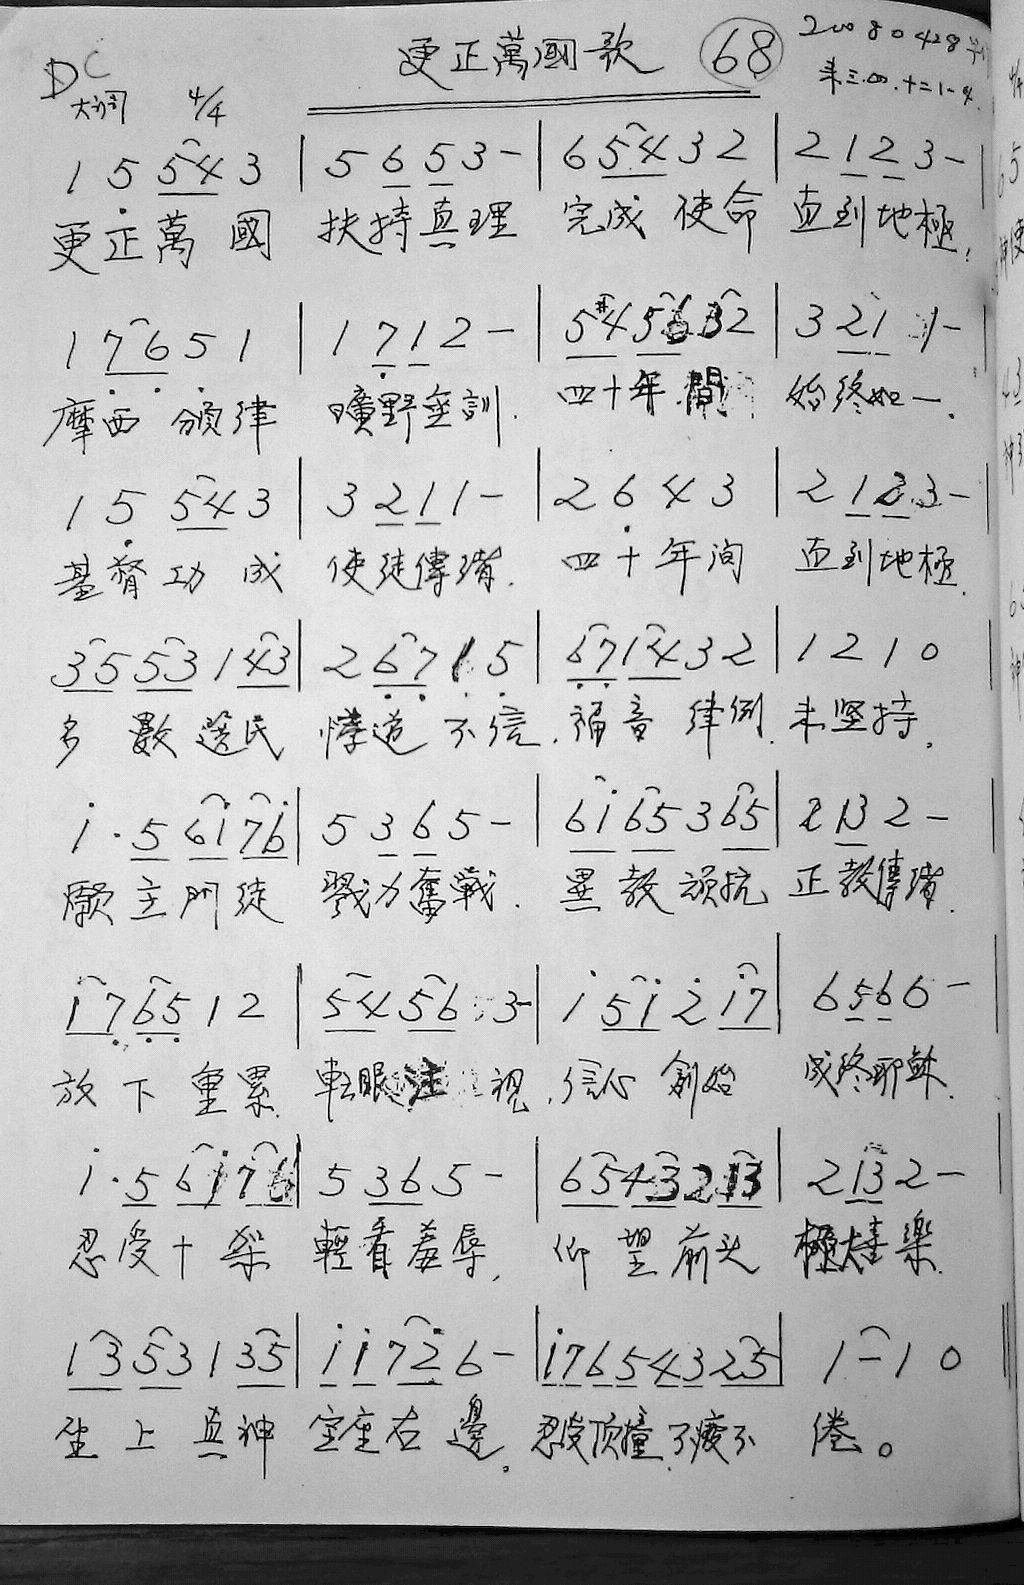 更正萬國歌 68 20080428
D C 大调 4/4 来三.四.十二1-4
1 5 5 4 3 | 5 6 5 3 - | 6 5 4 3 2 | 2 1 2 3 -
更正萬國 扶持真理 完成使命 直到地極.
1 7 6 5 1 | 1 7 1 2 - | 5 #4 5 6 3 2 | 3 2 1 1 -
摩西頒律 曠野垂訓. 四十年間 始终如一.
1 5 5 4 3 | 3 2 1 1 - | 2 6 4 3 | 2 1 2 3 -
基督功成 使徒傳揹. 四十年间 直到地極.
3 5 5 3 1 4 3 | 2 6 7 1 5 | 6 7 1 4 3 2 | 1 2 1 0
多數選民 悖逆不信. 福音律例 未坚持.
i · 5 6 i 7 6 | 5 3 6 5 - | 6 i 6 5 3 6 5 | 2 1 3 2 -
願主門徒 戮力奮戰. 異教頑抗 正教傳揹.
i 7 6 5 1 2 | 5 4 5 6 3 - | i 5 i 2 i 7 | 6 5 6 6 -
放下重累. 転眼注視. 信心創始 成终耶穌.
i · 5 6 i 7 6 | 5 3 6 5 - | 6 5 4 3 2 1 3 | 2 1 3 2 -
忍受十架 輕看羞辱. 仰望前头 極大喜樂.
1 3 5 3 1 3 5 | i i 7 2 6 - | i 7 6 5 4 3 2 5 | 1 - 1 0
坐上真神 宝座右邊. 忍受顶撞 不疲不倦。